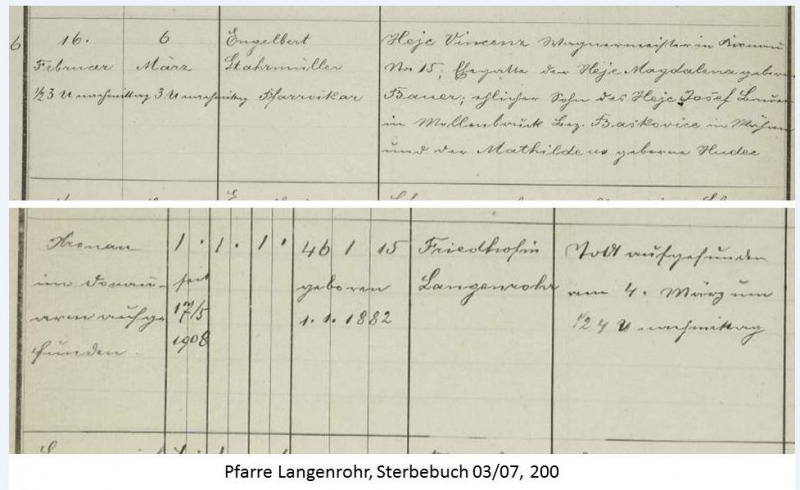 6
16.
Februar
½3 U nachmittag
6
März
3 U nachmittag
Engelbert
Stahrmüller
Pfarrvikar
Hejc Vincenz Wagnermeister in Kronau
No 15, Ehegatte der Hejc Magdalena geboren
Bauer; ehlicher Sohn des Hejc Josef
in Wollenbruck Bez. Baskovice in Mähren
und der Mathilde geborne Hudec
Kronau
im Donau-
arm aufge
funden
1 . 1 . 1 .
seit
17/5
1908
46 1 15
geboren
1. 1. 1882
Friedhof in
Langenrohr
Todt aufgefunden
am 4. März um
½ 4 U nachmittag
Pfarre Langenrohr, Sterbebuch 03/07, 200